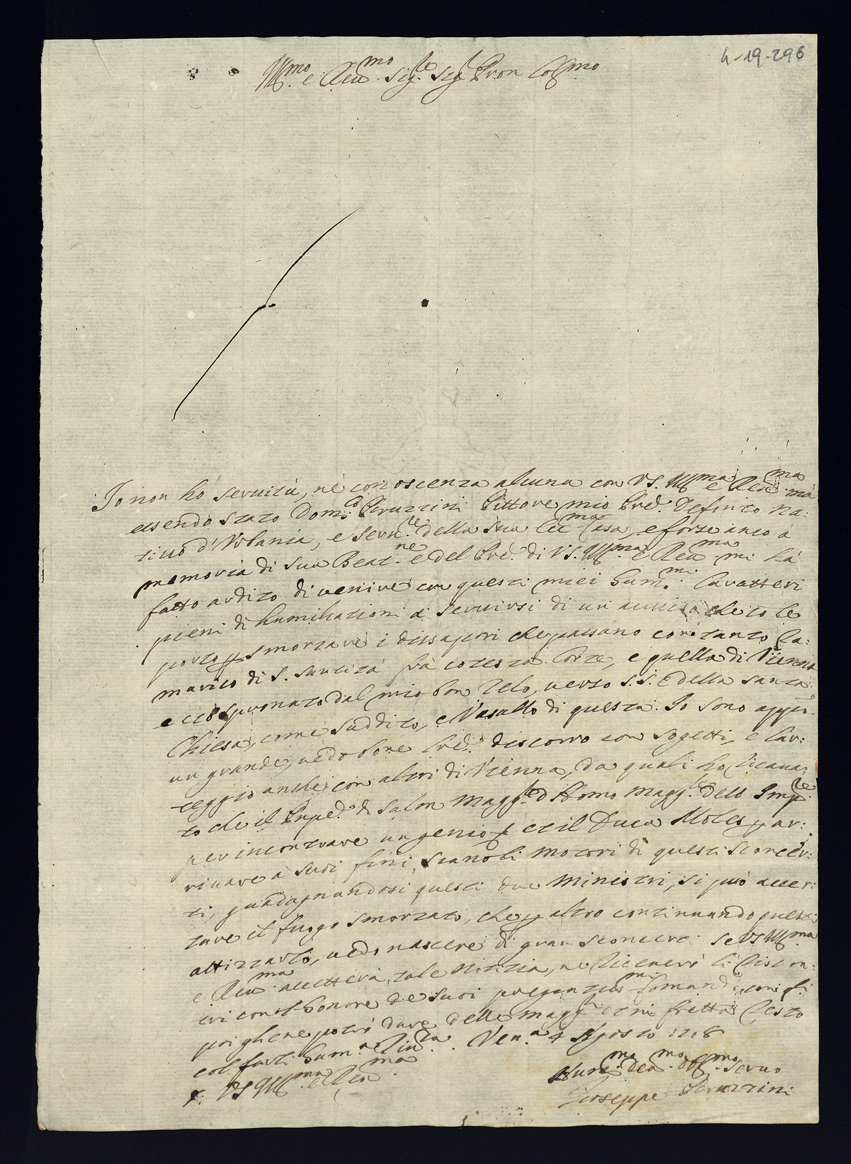 4-19-296
Ill.mo e Reu.mo Sig.re Sig.r Pron Col.mo
Io non hò seruitù, nè conoscenza alcuna con VS. Ill.ma e Reu.ma mà
essendo stato Dom.co Peruzzini Pittore mio Pred. Defonto na-
tiuo d'Vrbania, e seru.re della sua Ecc.ma Casa, e forze anco à
memoria di sua Beat.ne e del Pred. di VS. Ill.ma e Reu.ma mi hà
fatto ardito di uenire con questi miei hum.mi Caratteri
pieni di humiliationi à seruirsi di un auuiso che to le
porto p smorzare i dissapori che passano con tanto ra-
marico di S. Santità frà cotesta Corte, e quella di Vienna
e ciò spronato dal mio bon Zelo, uerso S.S. e della Santa
Chiesa, come suddito, e Vasallo di questa. Io sono appò
un grande, ed oue discorro con Sogetti, e Car-
teggio anche con altri di Vienna, da quali hò ricaua-
to che il di Salm Magg. d'Homo Magg. dell Imp.re
per incontrare un genio, et il Duca Moles p ar-
riuare à suoi fini, siano li motori di questi sconcer-
ti, guadagnandosi questi due Ministri, si può accer-
tare il fuogo smorzato, che p altro continuando questi
attizzarlo, uedo nascere di gran sconcerti. Se VS Ill.ma
e Reu.ma accetterà tale notizia, ne riceuerò li riscon-
tri con l'honore de suoi pregiatis.mi Comandi, con fi
poi ghene potrò dare delle magg.ri et in fretta resto
col farli hum.a Riu.za. Ven.a 4 Agosto 1708
D. VS Ill.ma e Reu.ma
Hum.mo Deu.mo Obl.mo Seruo
Gioseppe Peruzzini